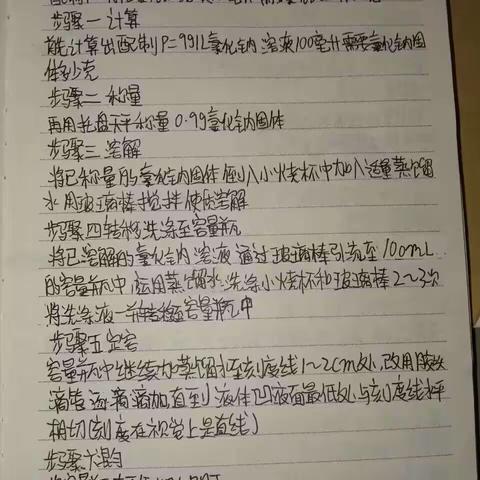 步骤一 计算
前先计算出配制ρ=9g/L氯化钠溶液100毫升需要氯化钠固
体多少克
步骤二 称量
再用托盘天平称量0.9g氯化钠固体
步骤三 溶解
将已称量的氯化钠固体倒入小烧杯中加入适量蒸馏
水用玻璃棒搅拌使其溶解
步骤四转移洗涤至容量瓶
将已溶解的氯化钠溶液通过玻璃棒引流至100mL
的容量瓶中 应用蒸馏水洗涤小烧杯和玻璃棒2~3次
将洗涤液一并转移至容量瓶中
步骤五定容
容量瓶中继续加蒸馏水至刻度线1~2cm处,改用胶头
滴管逐滴滴加直到液体凹液面最低处与刻度线水平
相切(刻度在视觉上是直线)
步骤六 摇匀